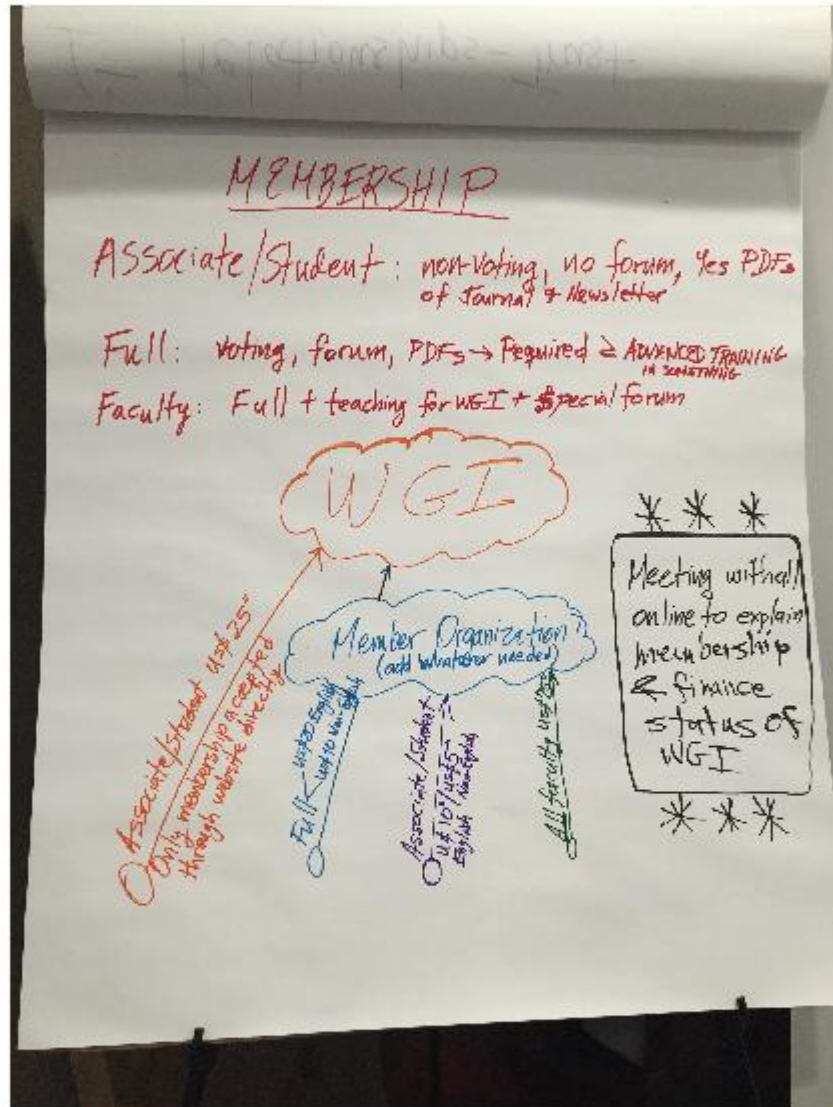 MEMBERSHIP
Associate/Student: non-voting, no forum, Yes PDFs
of Journal & Newsletter
Full: voting, forum, PDFs → Required ≥ ADVANCED TRAINING
IN SOMETHING
Faculty: Full + teaching for WGI + Special forum
WGI
Member Organization
(add whatever needed)
Associate/Student US$ 25
Only membership accepted
through website directly
Full US$20 English
US$10 Non-English
Associate/Student
US$10/US$5
English Non-English
All faculty US$
* * *
Meeting with all
online to explain
membership
& finance
status of
WGI
* * *